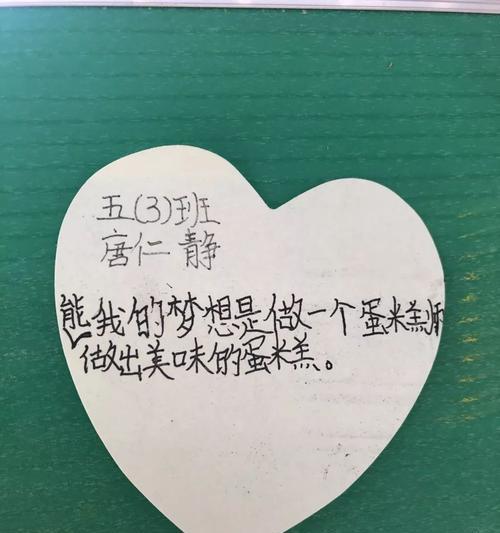 五(3)班
唐仁静
能我的梦想是做一个蛋糕师
做出美味的蛋糕。